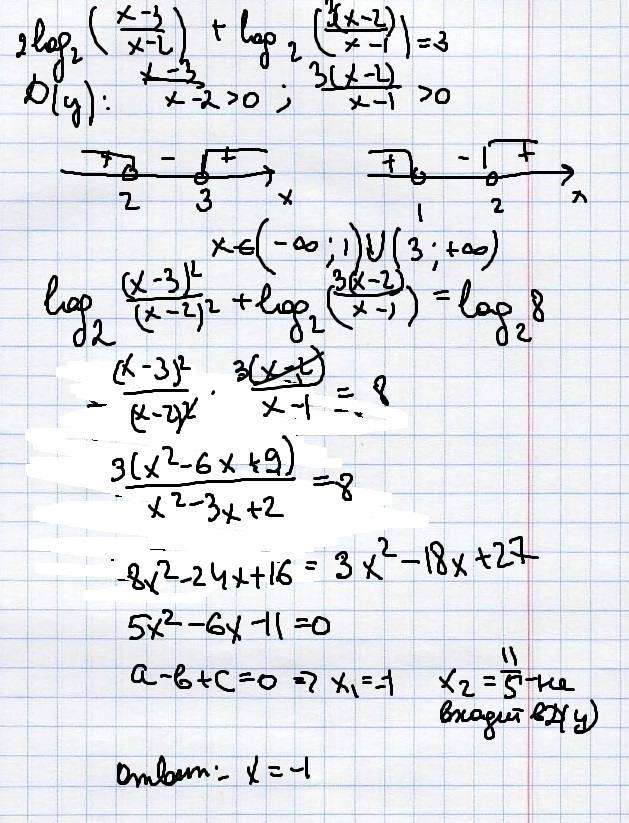 2log₂((x-3)/(x-2)) + log₂(3(x-2)/(x-1)) = 3
D(y): (x-3)/(x-2) > 0 ; 3(x-2)/(x-1) > 0
+ - + + - +
2 3 x 1 2 x
x∈(-∞;1)∪(3;+∞)
log₂ (x-3)²/(x-2)² + log₂(3(x-2)/(x-1)) = log₂8
(x-3)²/(x-2)² · 3(x-2)/(x-1) = 8
3(x²-6x+9)/(x²-3x+2) = 8
8x²-24x+16 = 3x²-18x+27
5x²-6x-11=0
a-b+c=0 => x₁=-1 x₂ = 11/5 - не
входит в D(y)
Ответ:- x = -1